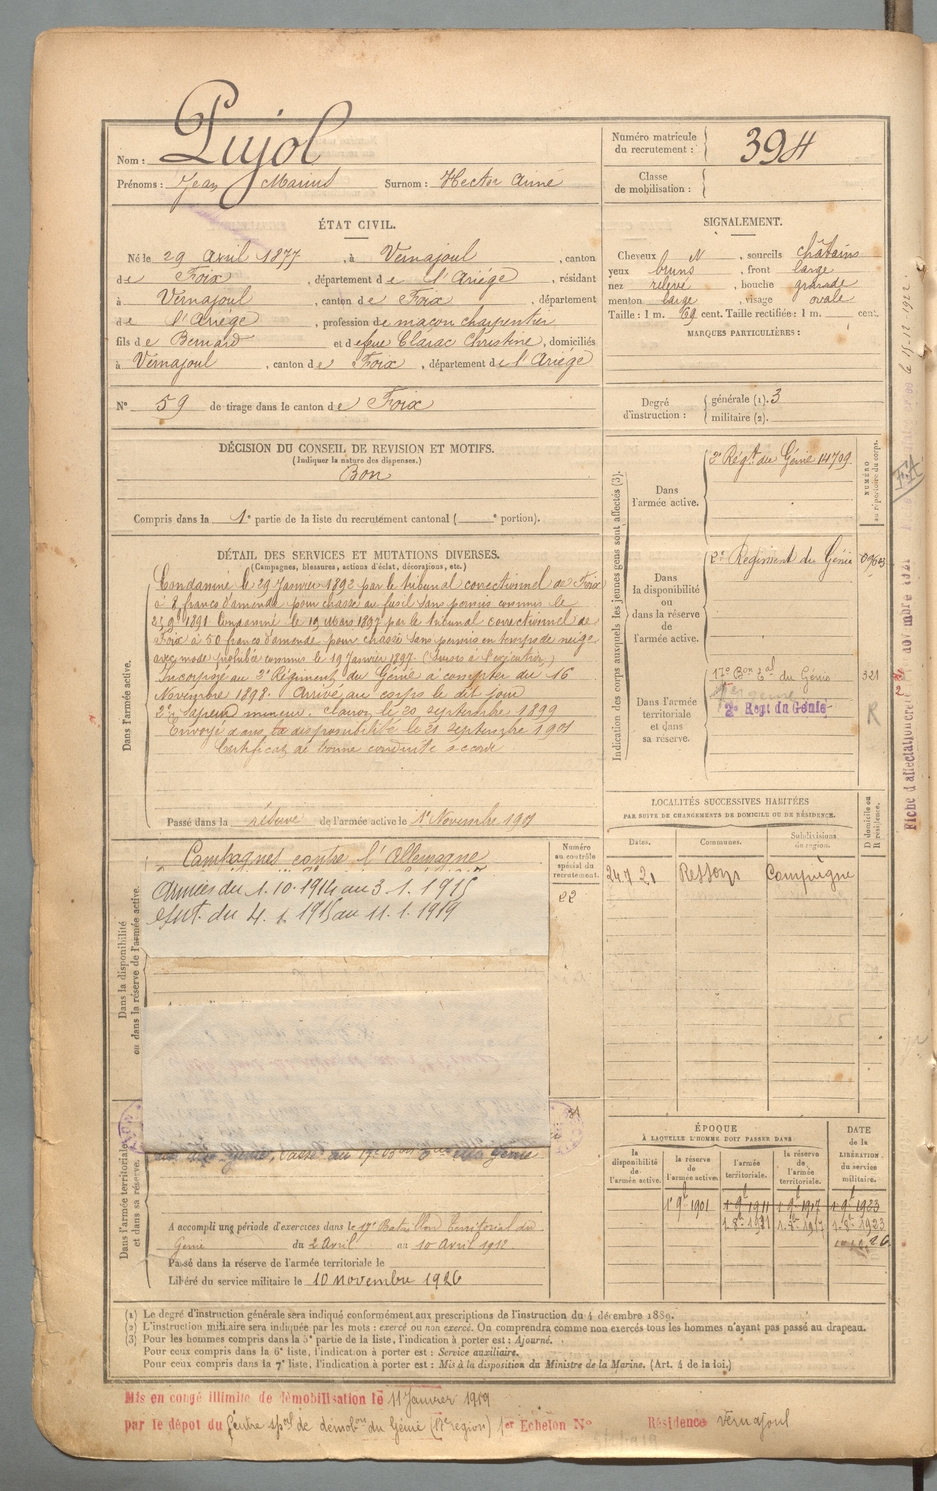 Nom : Pujol
Prénoms : Jean Marius Surnom : Hector Aimé
Numéro matricule du recrutement : 394
Classe de mobilisation :
ÉTAT CIVIL.
Né le 29 Avril 1877, à Vernajoul, canton
de Foix, département de l'Ariège, résidant
à Vernajoul, canton de Foix, département
de l'Ariège, profession de maçon charpentier
fils de Bernard et de feue Clarac Christine, domiciliés
à Vernajoul, canton de Foix, département de l'Ariège
N° 59 de tirage dans le canton de Foix
SIGNALEMENT.
Cheveux N, sourcils châtains
yeux bruns, front large
nez relevé, bouche grande
menton large, visage ovale
Taille : 1 m. 69 cent. Taille rectifiée : 1 m. cent.
MARQUES PARTICULIÈRES :
Degré d'instruction : générale (1). 3
militaire (2).
DÉCISION DU CONSEIL DE REVISION ET MOTIFS.
(Indiquer la nature des dispenses.)
Bon
Compris dans la 1e partie de la liste du recrutement cantonal ( e portion).
DÉTAIL DES SERVICES ET MUTATIONS DIVERSES.
(Campagnes, blessures, actions d'éclat, décorations, etc.)
Dans l'armée active.
Condamné le 29 Janvier 1892 par le tribunal correctionnel de Foix
à 8 francs d'amende pour chasse au fusil sans permis commis le
1891 Condamné le 19 Mars 1897 par le tribunal correctionnel de
Foix à 50 francs d'amende pour chasse sans permis en temps de neige
avec mode prohibé commis le 19 Janvier 1897. (Sursis à l'exécution)
Incorporé au 2e Régiment du Génie à compter du 16
Novembre 1898. Arrivé au corps le dit jour
2e sapeur mineur. Clairon le 20 septembre 1899
Envoyé dans la disponibilité le 21 septembre 1901
Certificat de bonne conduite accordé
Passé dans la réserve de l'armée active le 1er Novembre 1901
Indication des corps auxquels les jeunes gens sont affectés (3).
NUMÉRO au répertoire du corps.
Dans l'armée active.
2e Régt du Génie 14799
Dans la disponibilité ou dans la réserve de l'armée active.
2e Régiment du Génie
Dans l'armée territoriale et dans sa réserve.
17e Bon Tal du Génie 321
2e Regt du Génie
R
LOCALITÉS SUCCESSIVES HABITÉES
PAR SUITE DE CHANGEMENTS DE DOMICILE OU DE RÉSIDENCE.
Dates. Communes. Subdivisions de région. D domicile ou R résidence.
24 7 21 Ressons Compiègne
Dans la disponibilité ou dans la réserve de l'armée active.
Numéro au contrôle spécial du recrutement.
22
Campagnes contre l'Allemagne
Armées du 1.10.1914 au 3.1.1915
Int. du 4.1.1915 au 11.1.1919
Dans l'armée territoriale et dans sa réserve.
A accompli une période d'exercices dans le 17e Bataillon Territorial du
Génie du 2 Avril au 10 Avril 1912
Passé dans la réserve de l'armée territoriale le
Libéré du service militaire le 10 novembre 1926
ÉPOQUE
À LAQUELLE L'HOMME DOIT PASSER DANS :
la disponibilité de l'armée active. la réserve de l'armée active. l'armée territoriale. la réserve de l'armée territoriale.
DATE de la LIBÉRATION du service militaire.
1 9t 1901 1 9t 1911 1 9t 1917 1 9t 1923
(1) Le degré d'instruction générale sera indiqué conformément aux prescriptions de l'instruction du 4 décembre 1889.
(2) L'instruction militaire sera indiquée par les mots : exercé ou non exercé. On comprendra comme non exercés tous les hommes n'ayant pas passé au drapeau.
(3) Pour les hommes compris dans la 5e partie de la liste, l'indication à porter est : Ajourné.
Pour ceux compris dans la 6e liste, l'indication à porter est : Service auxiliaire.
Pour ceux compris dans la 7e liste, l'indication à porter est : Mis à la disposition du Ministre de la Marine. (Art. 4 de la loi.)
Mis en congé illimité de démobilisation le 11 Janvier 1919
par le dépôt du Centre spal de démobon du Génie (17e région) 1er Echelon N° Résidence Vernajoul